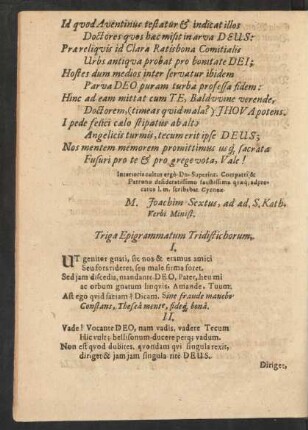 Id quod Aventinus testatur & indicat illos
Doctores quos hac misit in arva DEUS:
Præreliqvis id Clara Ratisbona Comitialis
Urbs antiqua probat pro bonitate DEI;
Hostes dum medios inter servatur ibidem
Parva DEO puram turba professa fidem:
Hinc ad eam mittat cum TE, Balduvine verende,
Doctorem, timeas quid mala? JHOVA potens.
I pede felici cælo stipatus ab alto
Angelicis turmis, tecum erit ipse DEUS;
Nos mentem memorem promittimus usq; sacrata
Fusuri pro te & pro grege vota. Vale!
Intermorie cultus ergò Dn. Superint. Compatri &
Patrono desideratissimo faustissima quæq; adpre-
catus l. m. scribebat Cygneæ
M. Joachimus Sextus, ad æd. S. Kath.
Verbi Minist.
Triga Epigrammatum Tridistichorum.
I.
UT genitor gnati, sic nos & eramus amici
Seu foras dures, seu male firma foret.
Sed jam discedis, mandante DEO, Pater, heu mi
ac orbum gnatum linquis, Amande, Tuum.
Ast ego quid faciam? Dicam. Sine fraude manebo
Constans, Theseâ mente, fideq; bonâ.
II.
Vade! Vocante DEO, nam vadis, vadere Tecum
Hic vult; bellissimum ducere perq; vadum.
Non est quod dubites, quondam qvi singula rexit,
diriget & jam jam singula ritè DEUS.
Diriget,